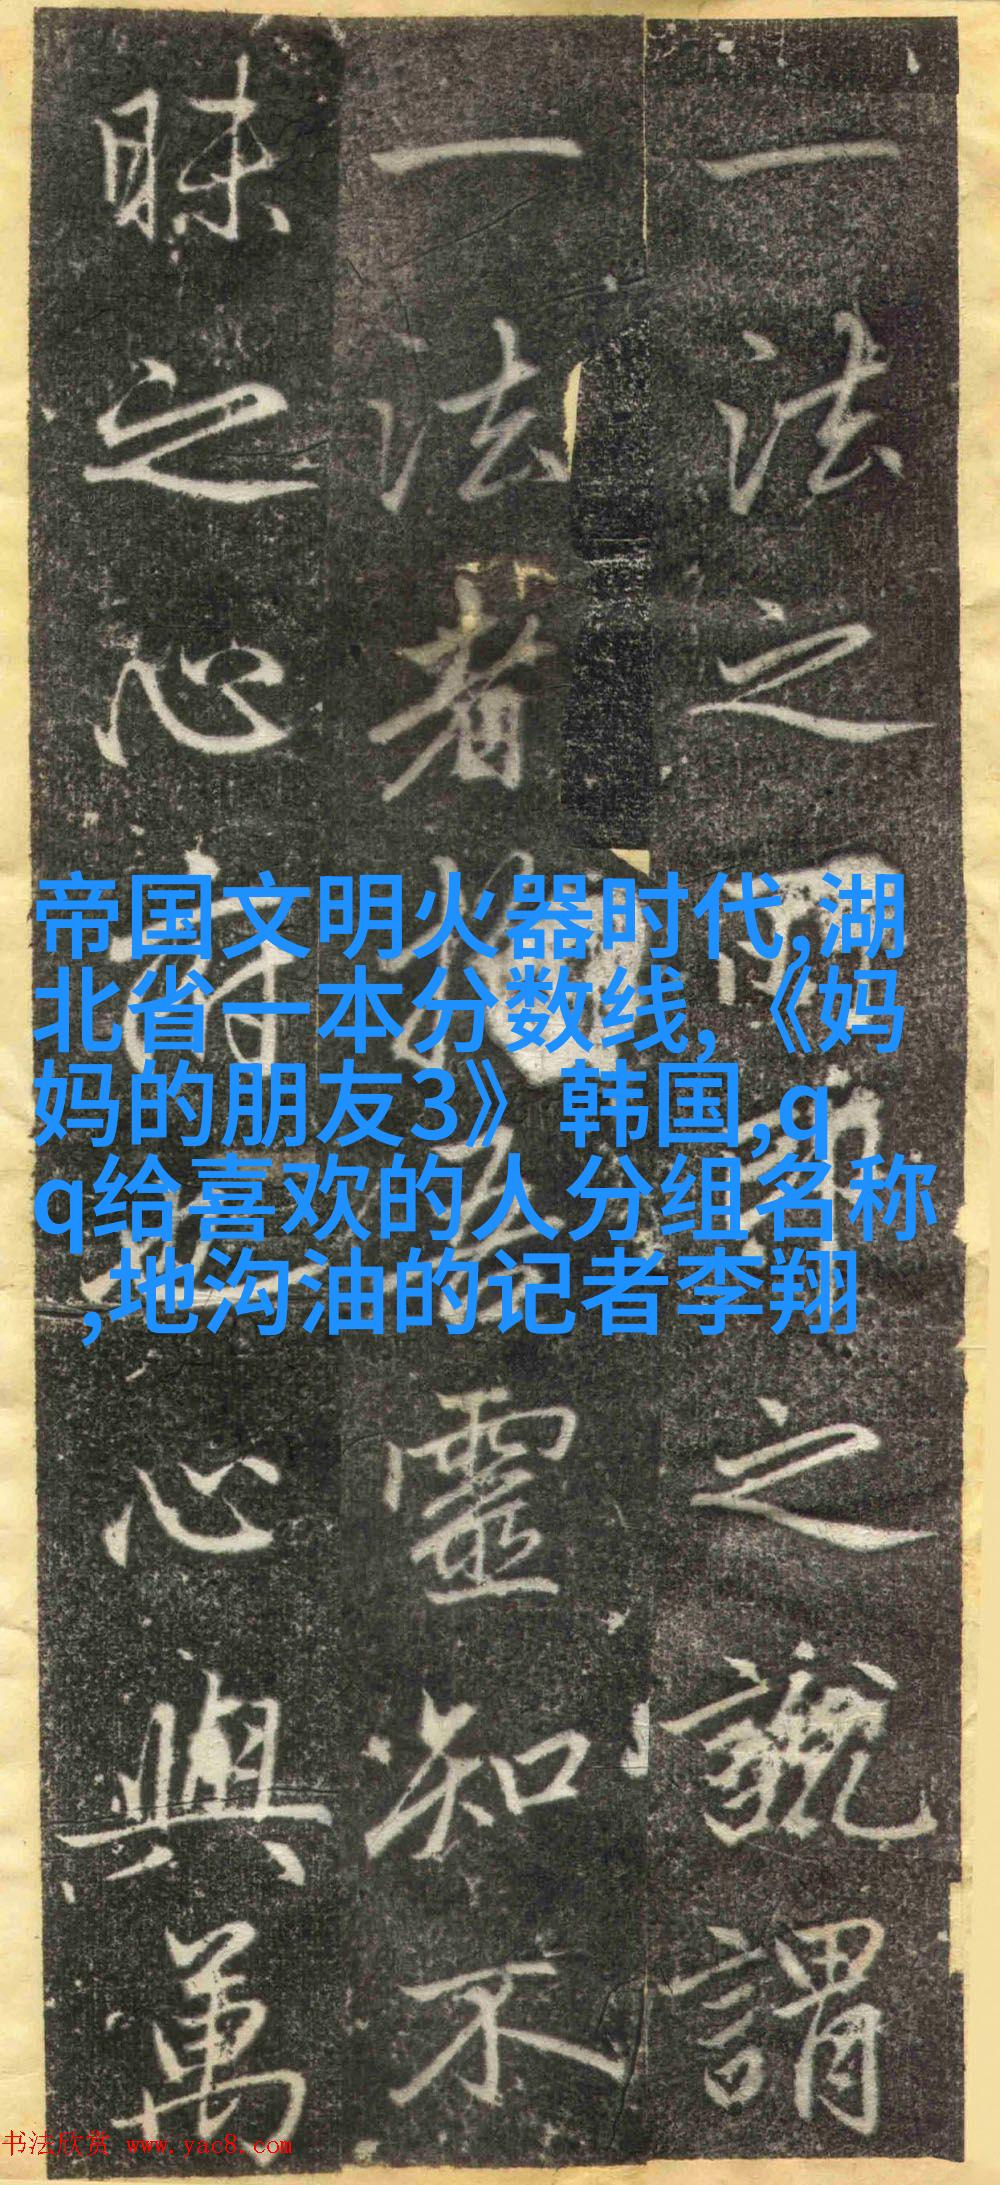 一法之
之說謂
一法者
靈知不
昧之心
心與萬
帝国文明火器时代,湖
北省一本分数线,《妈
妈的朋友3》韩国,q
q给喜欢的人分组名称
,地沟油的记者李翔
书法欣赏 www.yac8.com